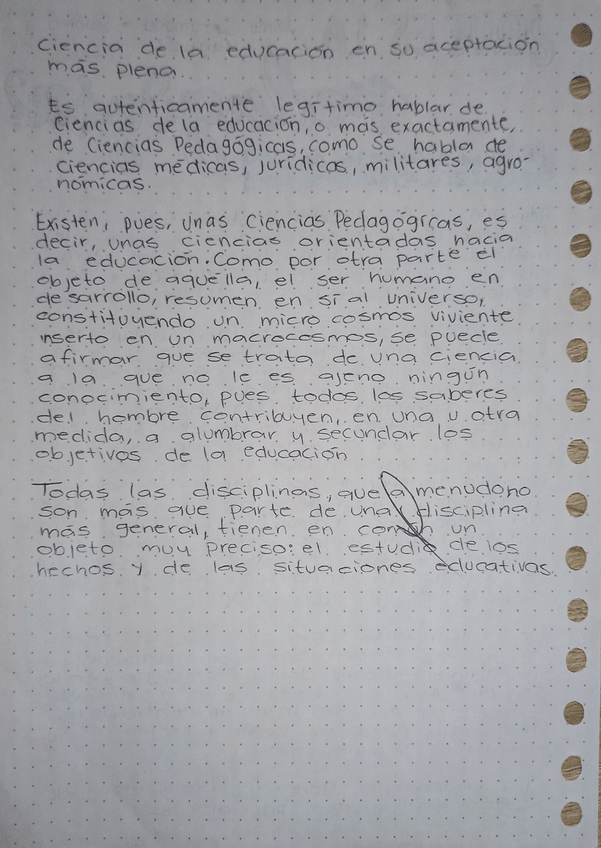 Ciencia de la educación en su aceptación
más plena.
Es auténticamente legítimo hablar de
Ciencias de la educación, o más exactamente,
de Ciencias Pedagógicas, como se habla de
Ciencias médicas, jurídicas, militares, agro-
nómicas.
Existen, pues, unas Ciencias Pedagógicas, es
decir, unas ciencias orientadas hacia
la educación. Como por otra parte el
objeto de aquélla, el ser humano en
desarrollo, resumen en sí al universo,
constituyendo un micro cosmos viviente
inserto en un macrocosmos, se puede
afirmar que se trata de una ciencia
a la que no le es ajeno ningún
conocimiento, pues todos los saberes
del hombre contribuyen, en una u otra
medida, a alumbrar y secundar los
objetivos de la educación
Todas las disciplinas, que a menudo no
son más que parte de una disciplina
más general, tienen en común un
objeto muy preciso: el estudio de los
hechos y de las situaciones educativas.